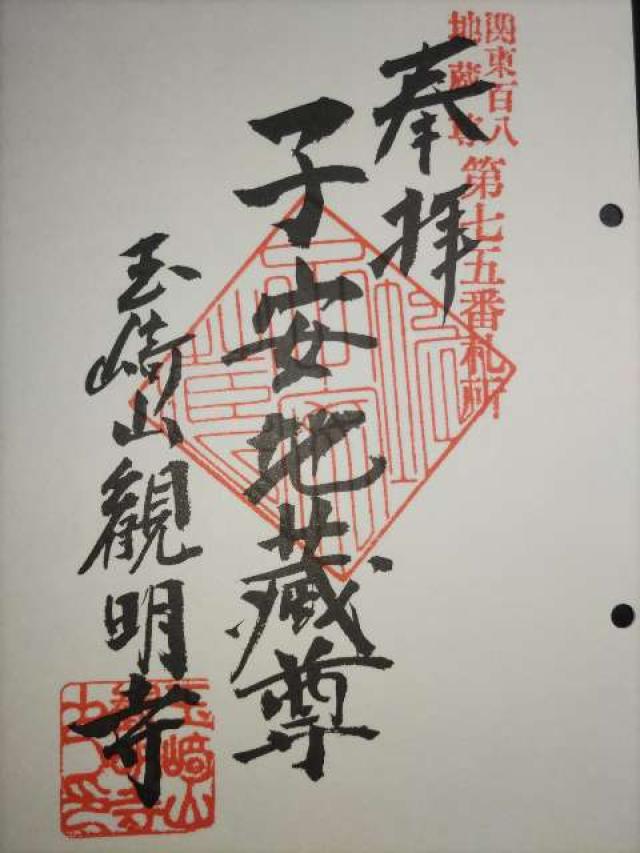 関東百八
地蔵尊
第七五番札所
奉拝
子安地蔵尊
玉崎山観明寺